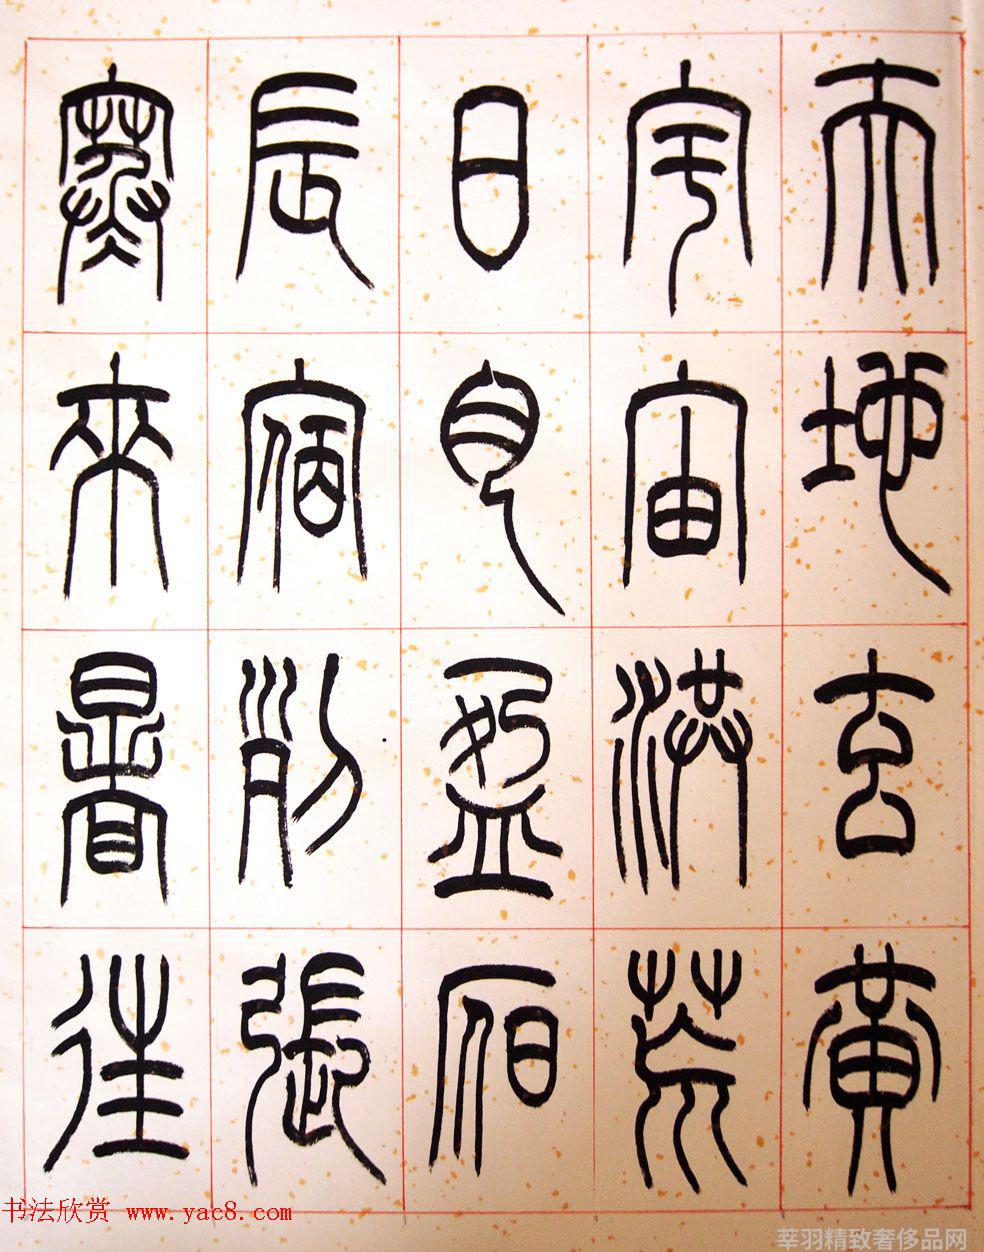 天地玄黃
宇宙洪荒
日月盈昃
辰宿列張
寒來暑往
书法欣赏 www.yac8.com
莘羽精致奢侈品网